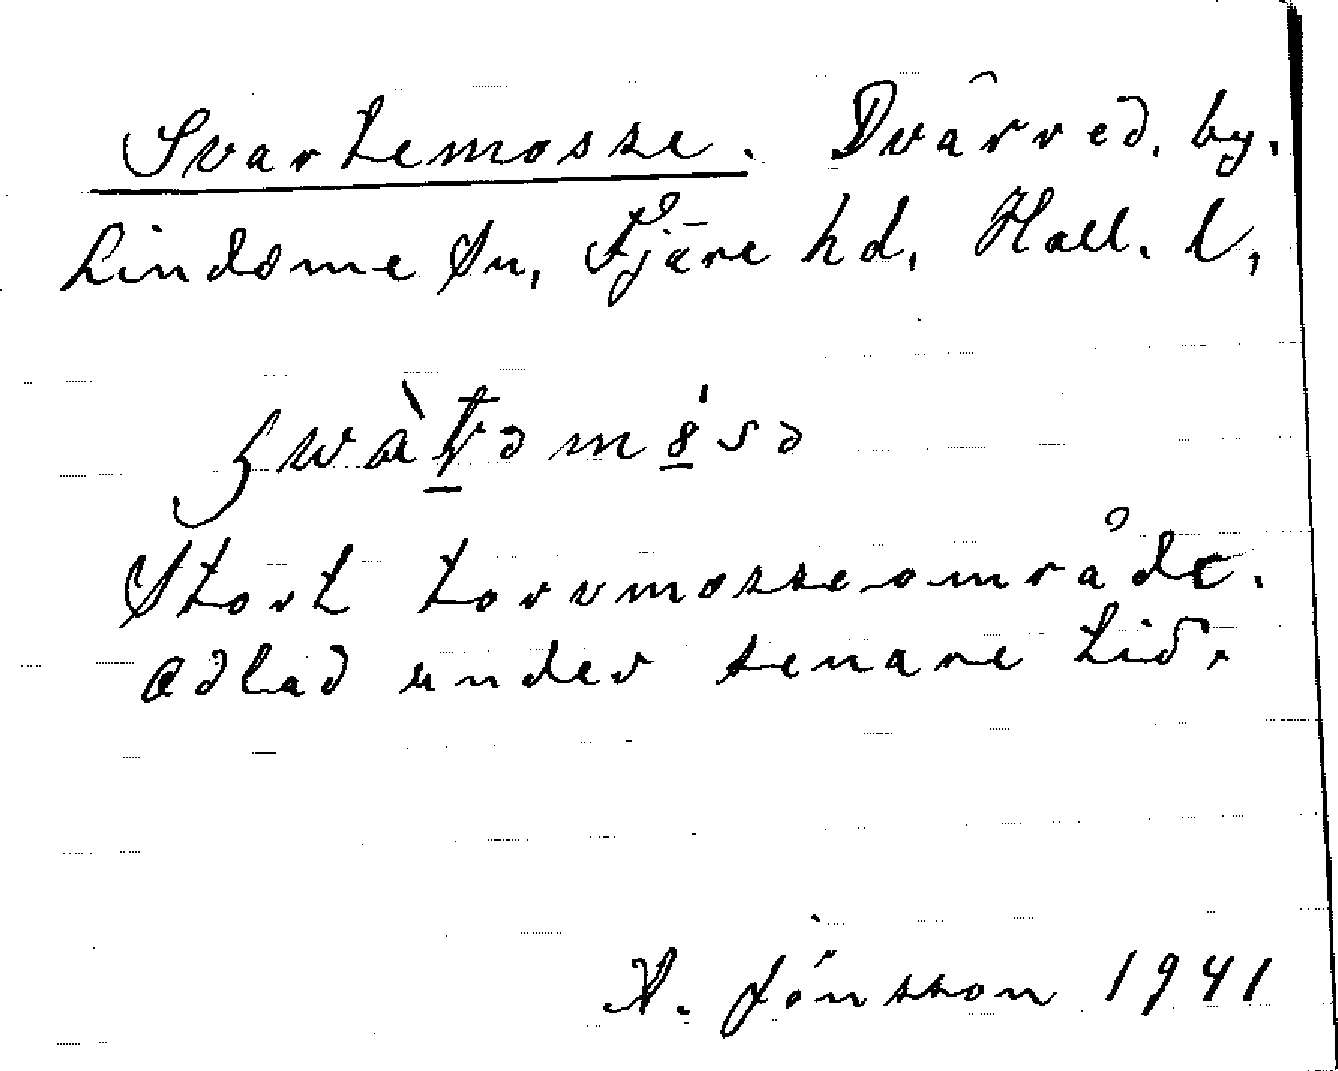 Svartemosse. Dvärred. by.
Lindome Sn, Fjäre hd, Hall. l,
Stort torvmosseområde.
Odlad under senare tid.
A. Jónsson 1941